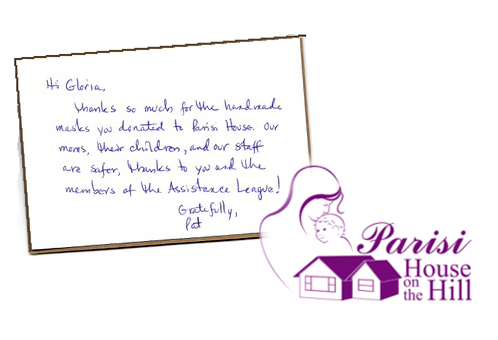 Hi Gloria,
Thanks so much for the handmade
masks you donated to Parisi House. Our
moms, their children, and our staff
are safer, thanks to you and the
members of the Assistance League!
Gratefully,
Pat
Parisi
House
on
the Hill